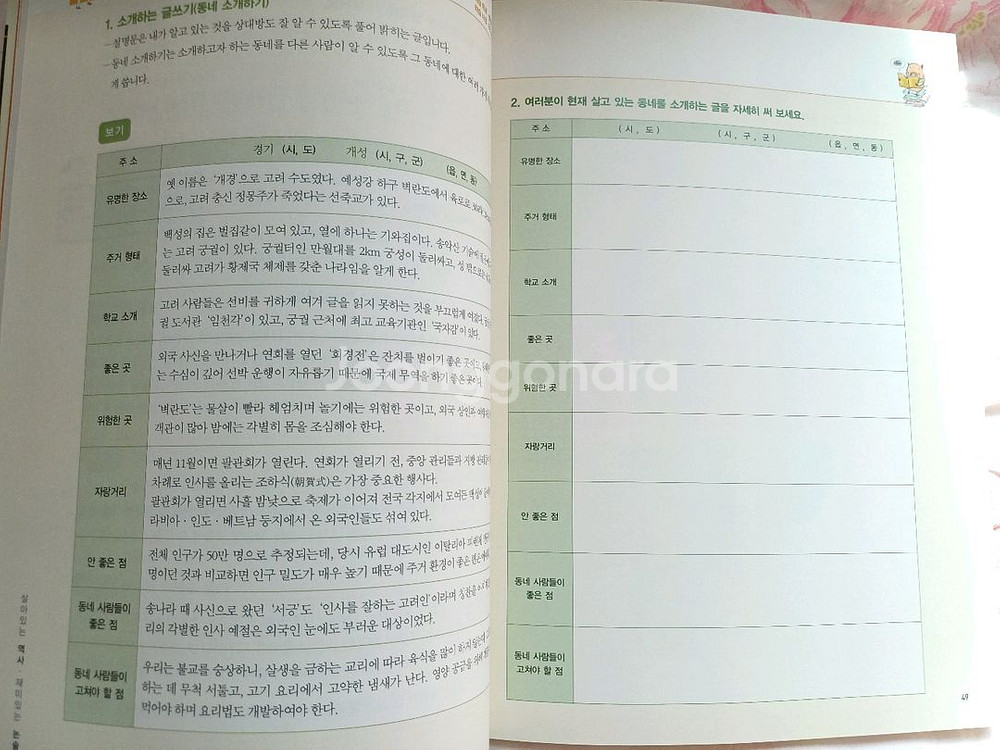 1. 소개하는 글쓰기(동네 소개하기)
–설명문은 내가 알고 있는 것을 상대방도 잘 알 수 있도록 풀어 밝히는 글입니다.
–동네 소개하기는 소개하고자 하는 동네를 다른 사람이 알 수 있도록 그 동네에 대한 여러 가지
게 씁니다.
보기
주 소 경기 (시, 도) 개성 (시, 구, 군) (읍, 면, 동)
유명한 장소
옛 이름은 '개경'으로 고려 수도였다. 예성강 하구 벽란도에서 육로로
으로, 고려 충신 정몽주가 죽었다는 선죽교가 있다.
주거 형태
백성의 집은 벌집같이 모여 있고, 열에 하나는 기와집이다. 송악산 기슭에
는 고려 궁궐이 있다. 궁궐터인 만월대를 2km 궁성이 둘러싸고, 성
둘러싸 고려가 황제국 체제를 갖춘 나라임을 알게 한다.
학교 소개
고려 사람들은 선비를 귀하게 여겨 글을 읽지 못하는 것을 부끄럽게 여겼다.
궐 도서관 '임천각'이 있고, 궁궐 근처에 최고 교육기관인 '국자감'이 있다.
좋은 곳
외국 사신을 만나거나 연회를 열던 '회경전'은 잔치를 벌이기 좋은 곳이고,
는 수심이 깊어 선박 운행이 자유롭기 때문에 국제 무역을 하기 좋은 곳이다.
위험한 곳
'벽란도'는 물살이 빨라 헤엄치며 놀기에는 위험한 곳이고, 외국 상인과
객관이 많아 밤에는 각별히 몸을 조심해야 한다.
자랑거리
매년 11월이면 팔관회가 열린다. 연회가 열리기 전, 중앙 관리들과 지방
차례로 인사를 올리는 조하식(朝賀式)은 가장 중요한 행사다.
팔관회가 열리면 사흘 밤낮으로 축제가 이어져 전국 각지에서 모여든 백성이
라비아·인도·베트남 등지에서 온 외국인들도 섞여 있다.
안 좋은 점
전체 인구가 50만 명으로 추정되는데, 당시 유럽 대도시인 이탈리아 피렌체
명이던 것과 비교하면 인구 밀도가 매우 높기 때문에 주거 환경이 좋은 편은
동네 사람들이
좋은 점
송나라 때 사신으로 왔던 '서긍'도 '인사를 잘하는 고려인'이라며 칭찬을
리의 각별한 인사 예절은 외국인 눈에도 부러운 대상이었다.
동네 사람들이
고쳐야 할 점
우리는 불교를 숭상하니, 살생을 금하는 교리에 따라 육식을 많이 하지 않는데
하는 데 무척 서툴고, 고기 요리에서 고약한 냄새가 난다. 영양 공급을 위해
먹어야 하며 요리법도 개발하여야 한다.
살아있는 역사·재미있는 논술
2. 여러분이 현재 살고 있는 동네를 소개하는 글을 자세히 써 보세요.
주 소 (시, 도) (시, 구, 군) (읍, 면, 동)
유명한 장소
주거 형태
학교 소개
좋은 곳
위험한 곳
자랑거리
안 좋은 점
동네 사람들이
좋은 점
동네 사람들이
고쳐야 할 점
49
Joonggonara